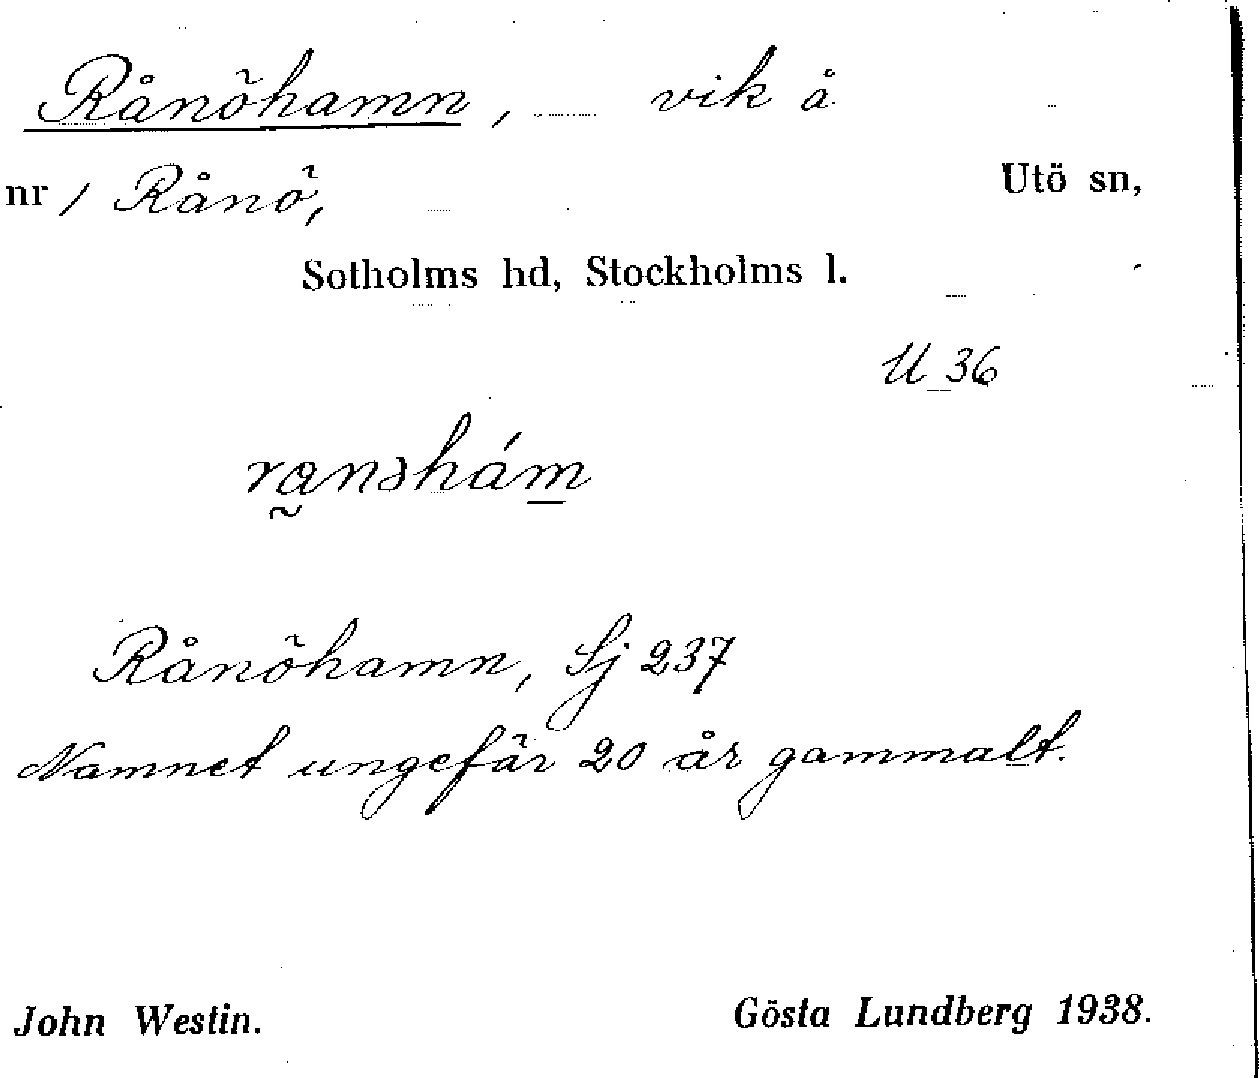 Rånöhamn, vik å
nr 1 Rånö, Utö sn,
Sotholms hd, Stockholms l.
U 36
rḁnshám̲
Rånöhamn, Sj 237
Namnet ungefär 20 år gammalt.
John Westin. Gösta Lundberg 1938.